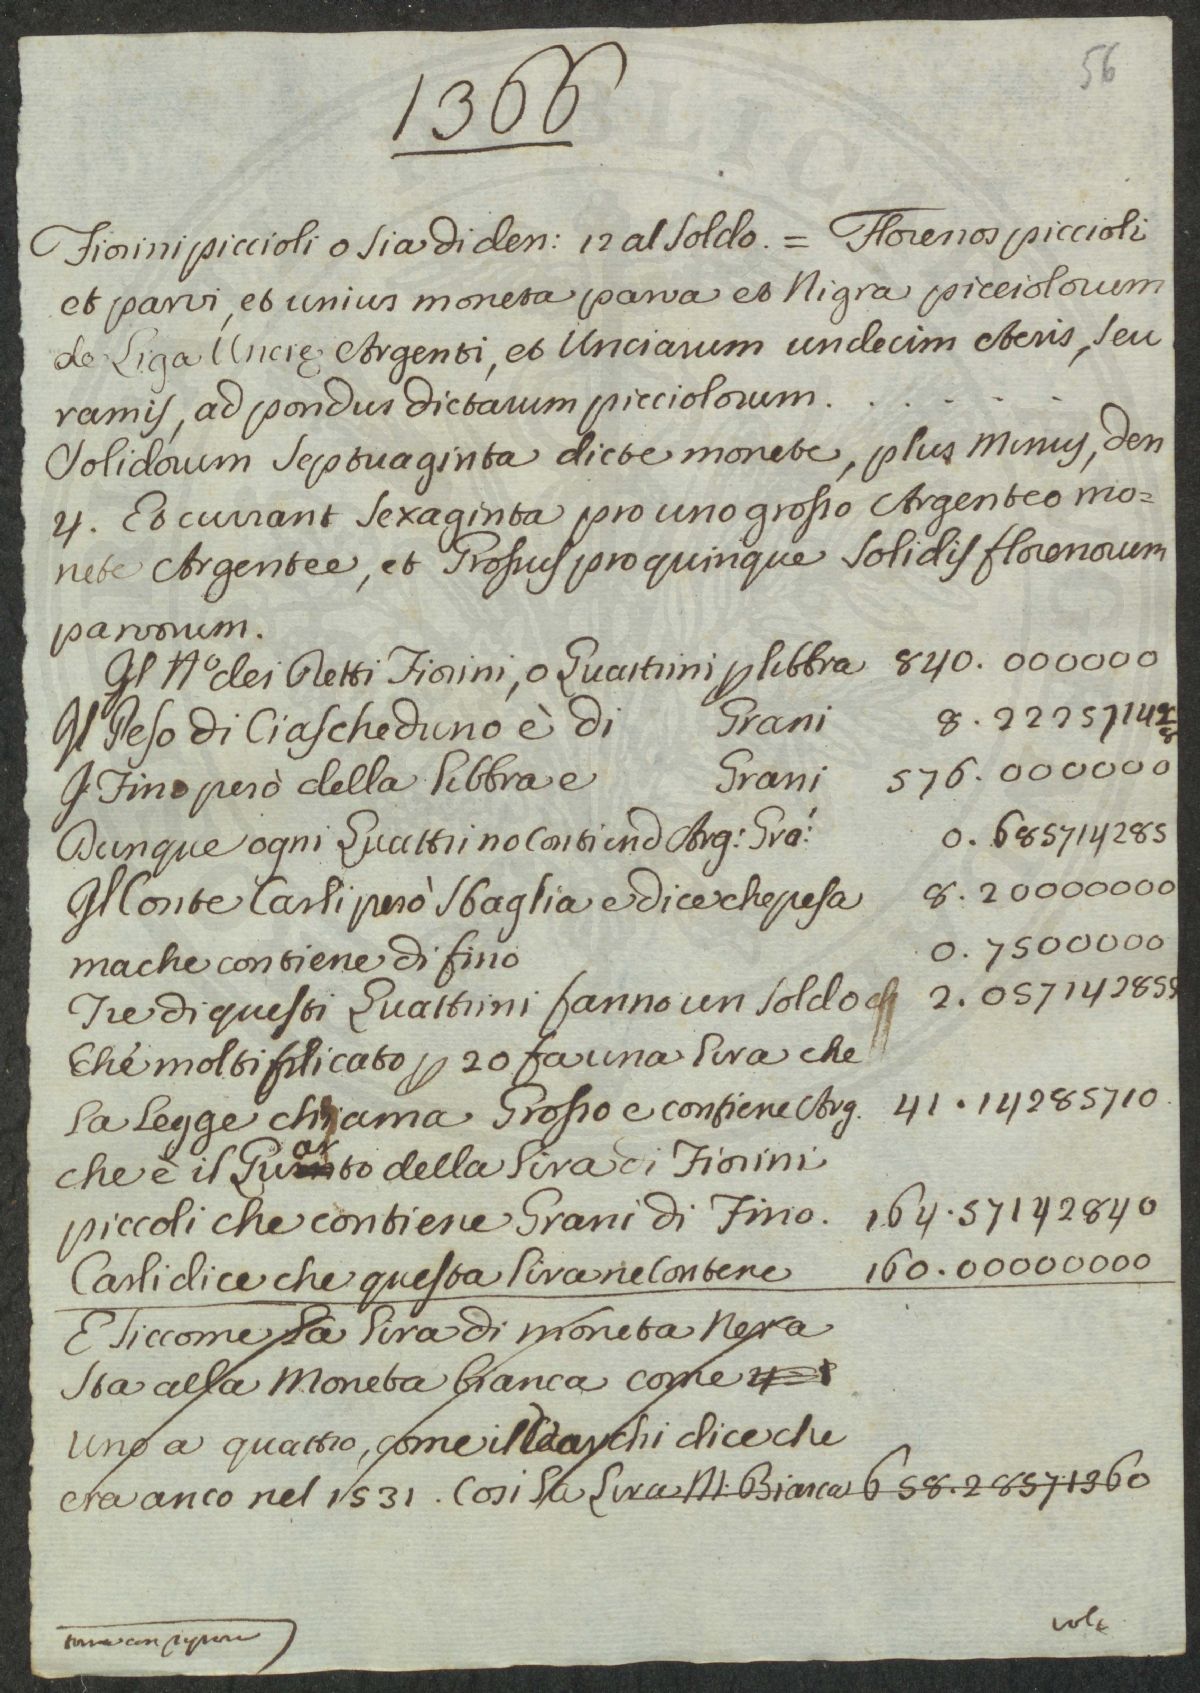 56
1366
Fiorini piccioli o sia di den: 12 al soldo. = Florenos piccioli
et parvi, et unius moneta parva et Nigra picciolorum
de Liga Uncię Argenti, et Unciarum undecim Aeris, seu
ramis, ad pondus dictarum picciolorum. . . . . . .
Solidorum Septuaginta dicte monete, plus Minus, den
4. Et currant sexaginta pro uno grosso Argenteo mo=
nete Argentee, et Grossus pro quinque solidis florenorum
parvorum.
Il N.o dei Detti Fiorini, o Quattrini p libbra 840. 000000
Il Peso di Ciascheduno è di Grani 8. 2225714
Il Fino però della libbra e Grani 576. 000000
Dunque ogni Quattrino contiene Arg: Gra: 0. 685714285
Il Conte Carli però sbaglia e dice che pesa 8. 20000000
ma che contiene di fino 0. 7500000
Tre di questi Quattrini fanno un soldo 2. 057142855
Che moltiplicato p 20 fa una lira che
la Legge chiama Grosso e contiene Arg. 41. 14285710.
che è il Quarto della lira di Fiorini
piccoli che contiene Grani di Fino. 164. 57142840
Carli dice che questa lira ne contene 160. 00000000
E siccome la lira di moneta Nera
sta alla Moneta bianca come
uno a quattro, come il Varchi dice che
era anco nel 1531. Cosi la Lira M. Bianca 658. 28571360
volt